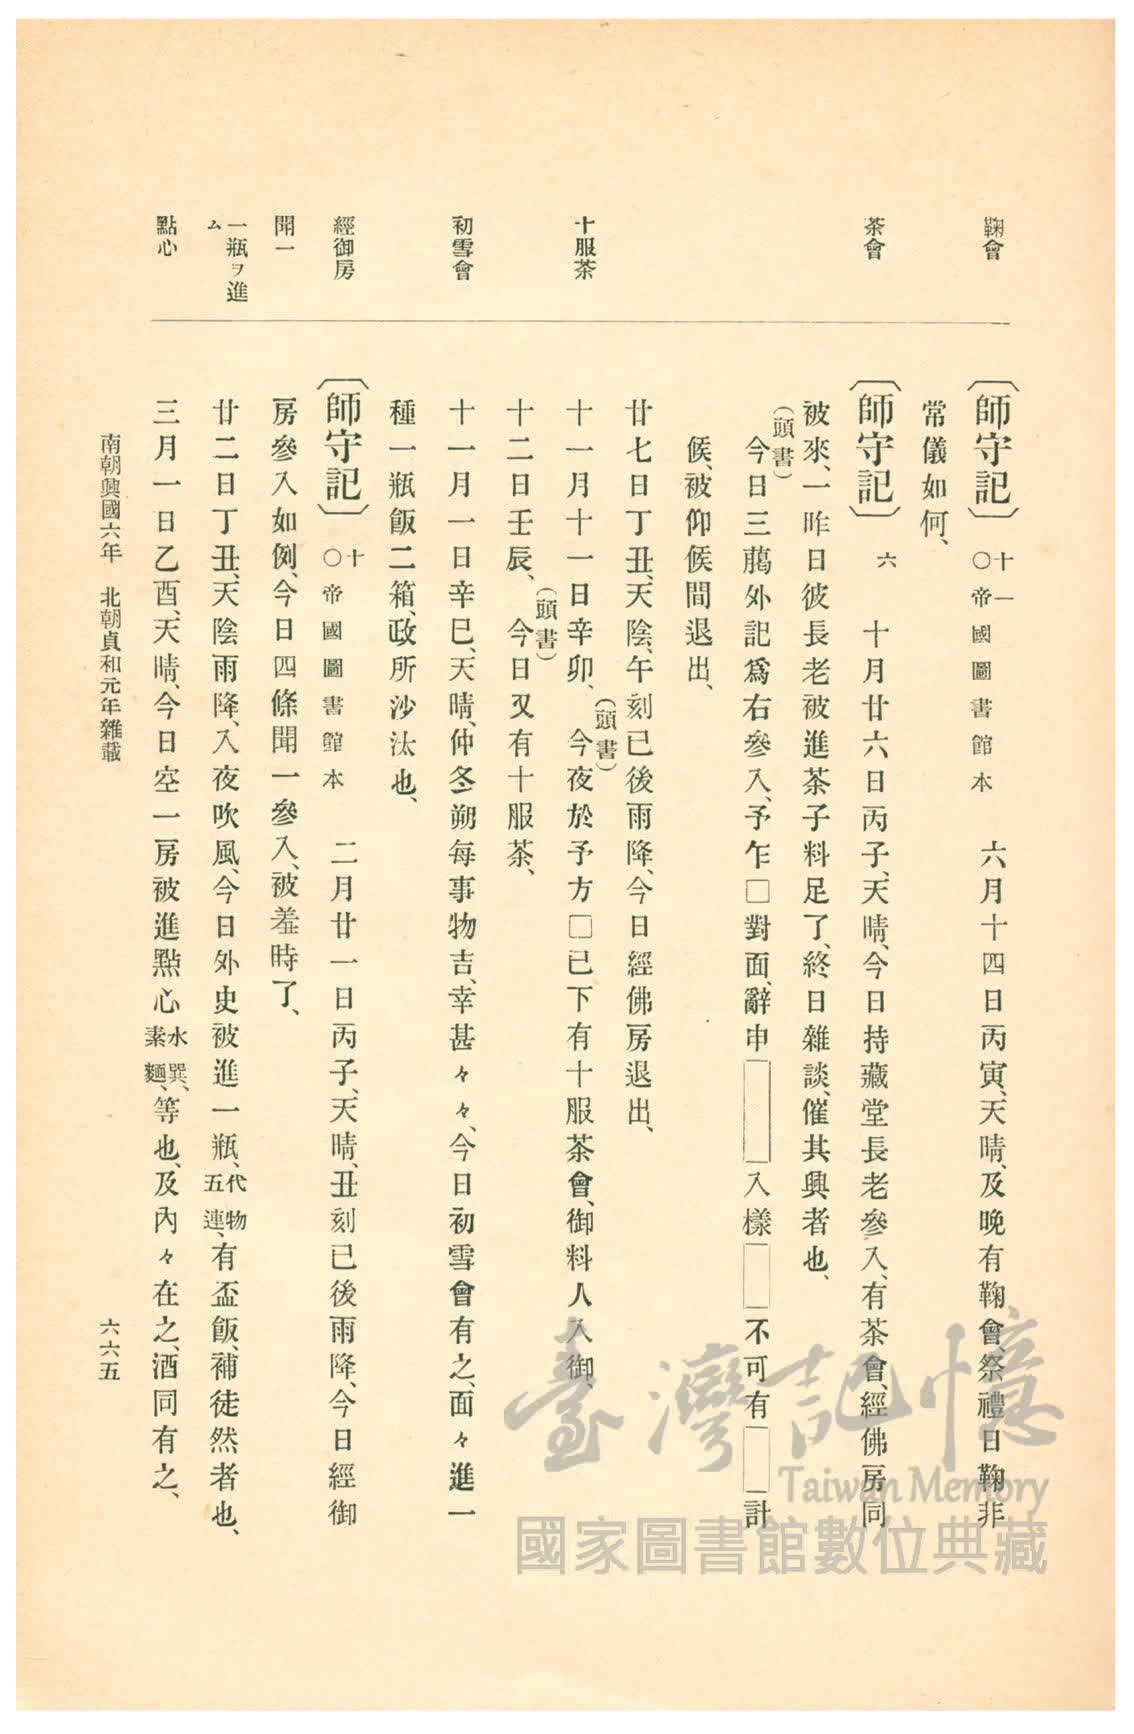 鞠會
茶會
十服茶
初雪會
經御房
聞一
一瓶ヲ進
ム
點心
〔師守記〕十一○帝國圖書館本　六月十四日丙寅、天晴、及晚有鞠會、祭禮日鞠非
常儀如何、
〔師守記〕六　十月廿六日丙子、天晴、今日持藏堂長老參入、有茶會、經佛房同
被來、一昨日彼長老被進茶子料足了、終日雜談、催其興者也、
（頭書）
今日三﨟外記爲右參入、予乍□對面、辭申□入樣□不可有□計
候、被仰候間退出、
廿七日丁丑、天陰、午刻已後雨降、今日經佛房退出、
十一月十一日辛卯、（頭書）今夜於予方□已下有十服茶會、御料人入御、
十二日壬辰、（頭書）今日又有十服茶、
十一月一日辛巳、天晴、仲冬朔每事物吉、幸甚々々、今日初雪會有之、面々進一
種一瓶飯二箱、政所沙汰也、
〔師守記〕十○帝國圖書館本　二月廿一日丙子、天晴、丑刻已後雨降、今日經御
房參入如例、今日四條聞一參入、被羞時了、
廿二日丁丑、天陰雨降、入夜吹風、今日外史被進一瓶、代物五連、有盃飯、補徒然者也、
三月一日乙酉、天晴、今日空一房被進點心水巽、素麵、等也、及內々在之、酒同有之、
南朝興國六年　北朝貞和元年雜載
六六五
臺灣記憶
Taiwan Memory
國家圖書館數位典藏